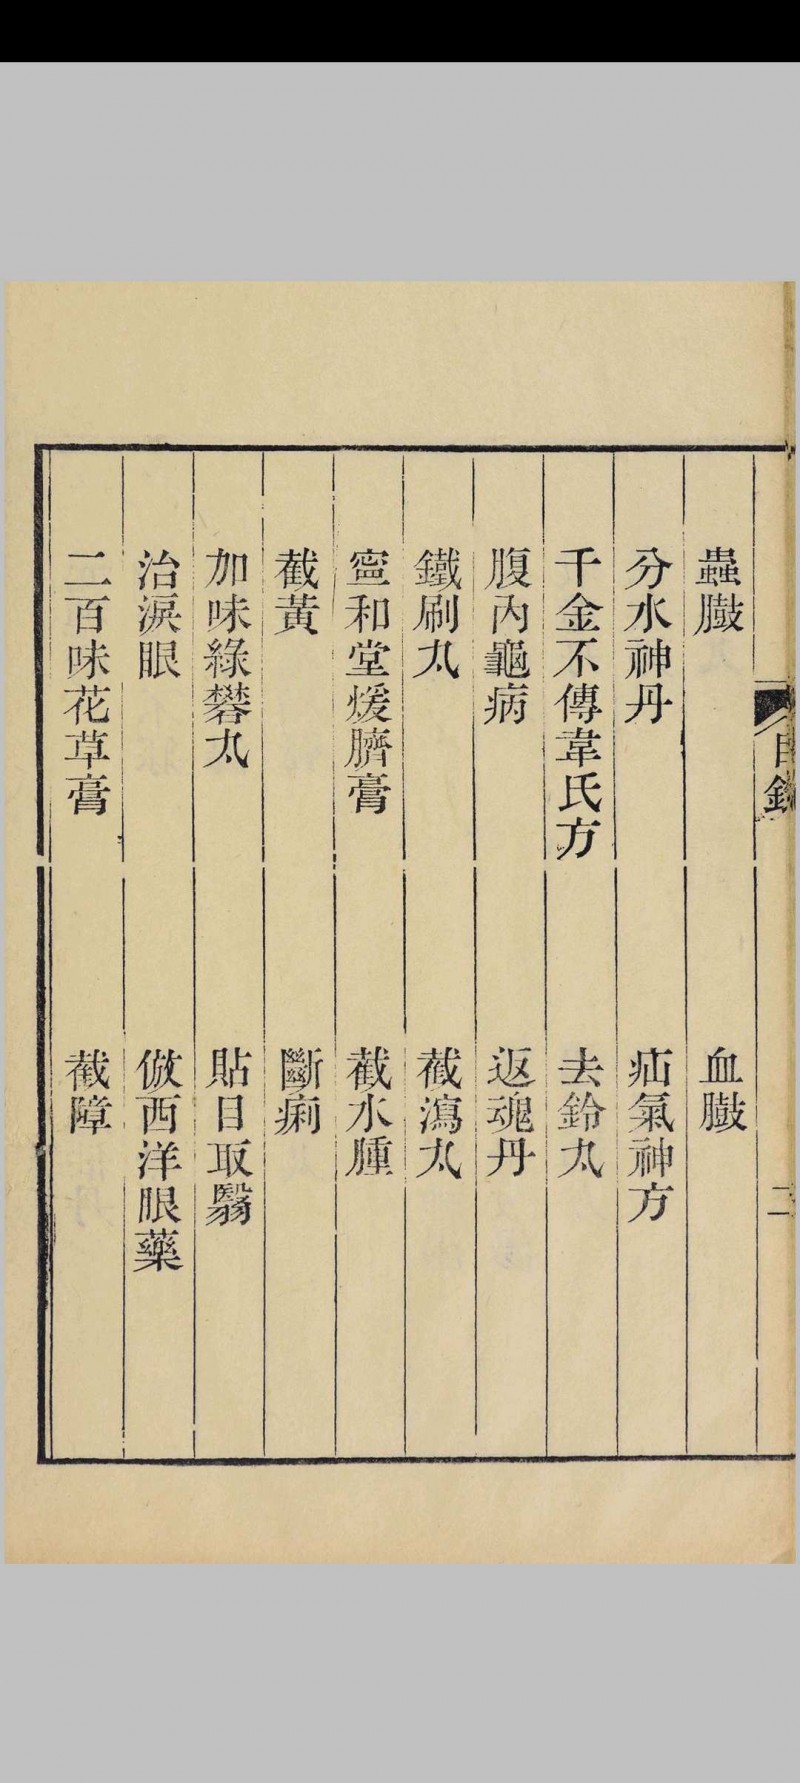 目錄
二
蟲臌
血臌
分水神丹
疝氣神方
千金不傳韋氏方
去鈴丸
腹內龜病
返魂丹
鐵刷丸
截瀉丸
寧和堂煖臍膏
截水腫
截黃
斷痢
加味綠礬丸
貼目取翳
治淚眼
倣西洋眼藥
二百味花草膏
截障